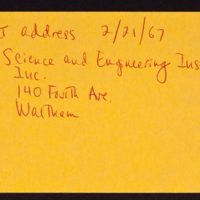 address 2/21/67
Science and Engineering Ins
Inc.
140 Fourth Ave.
Waltham